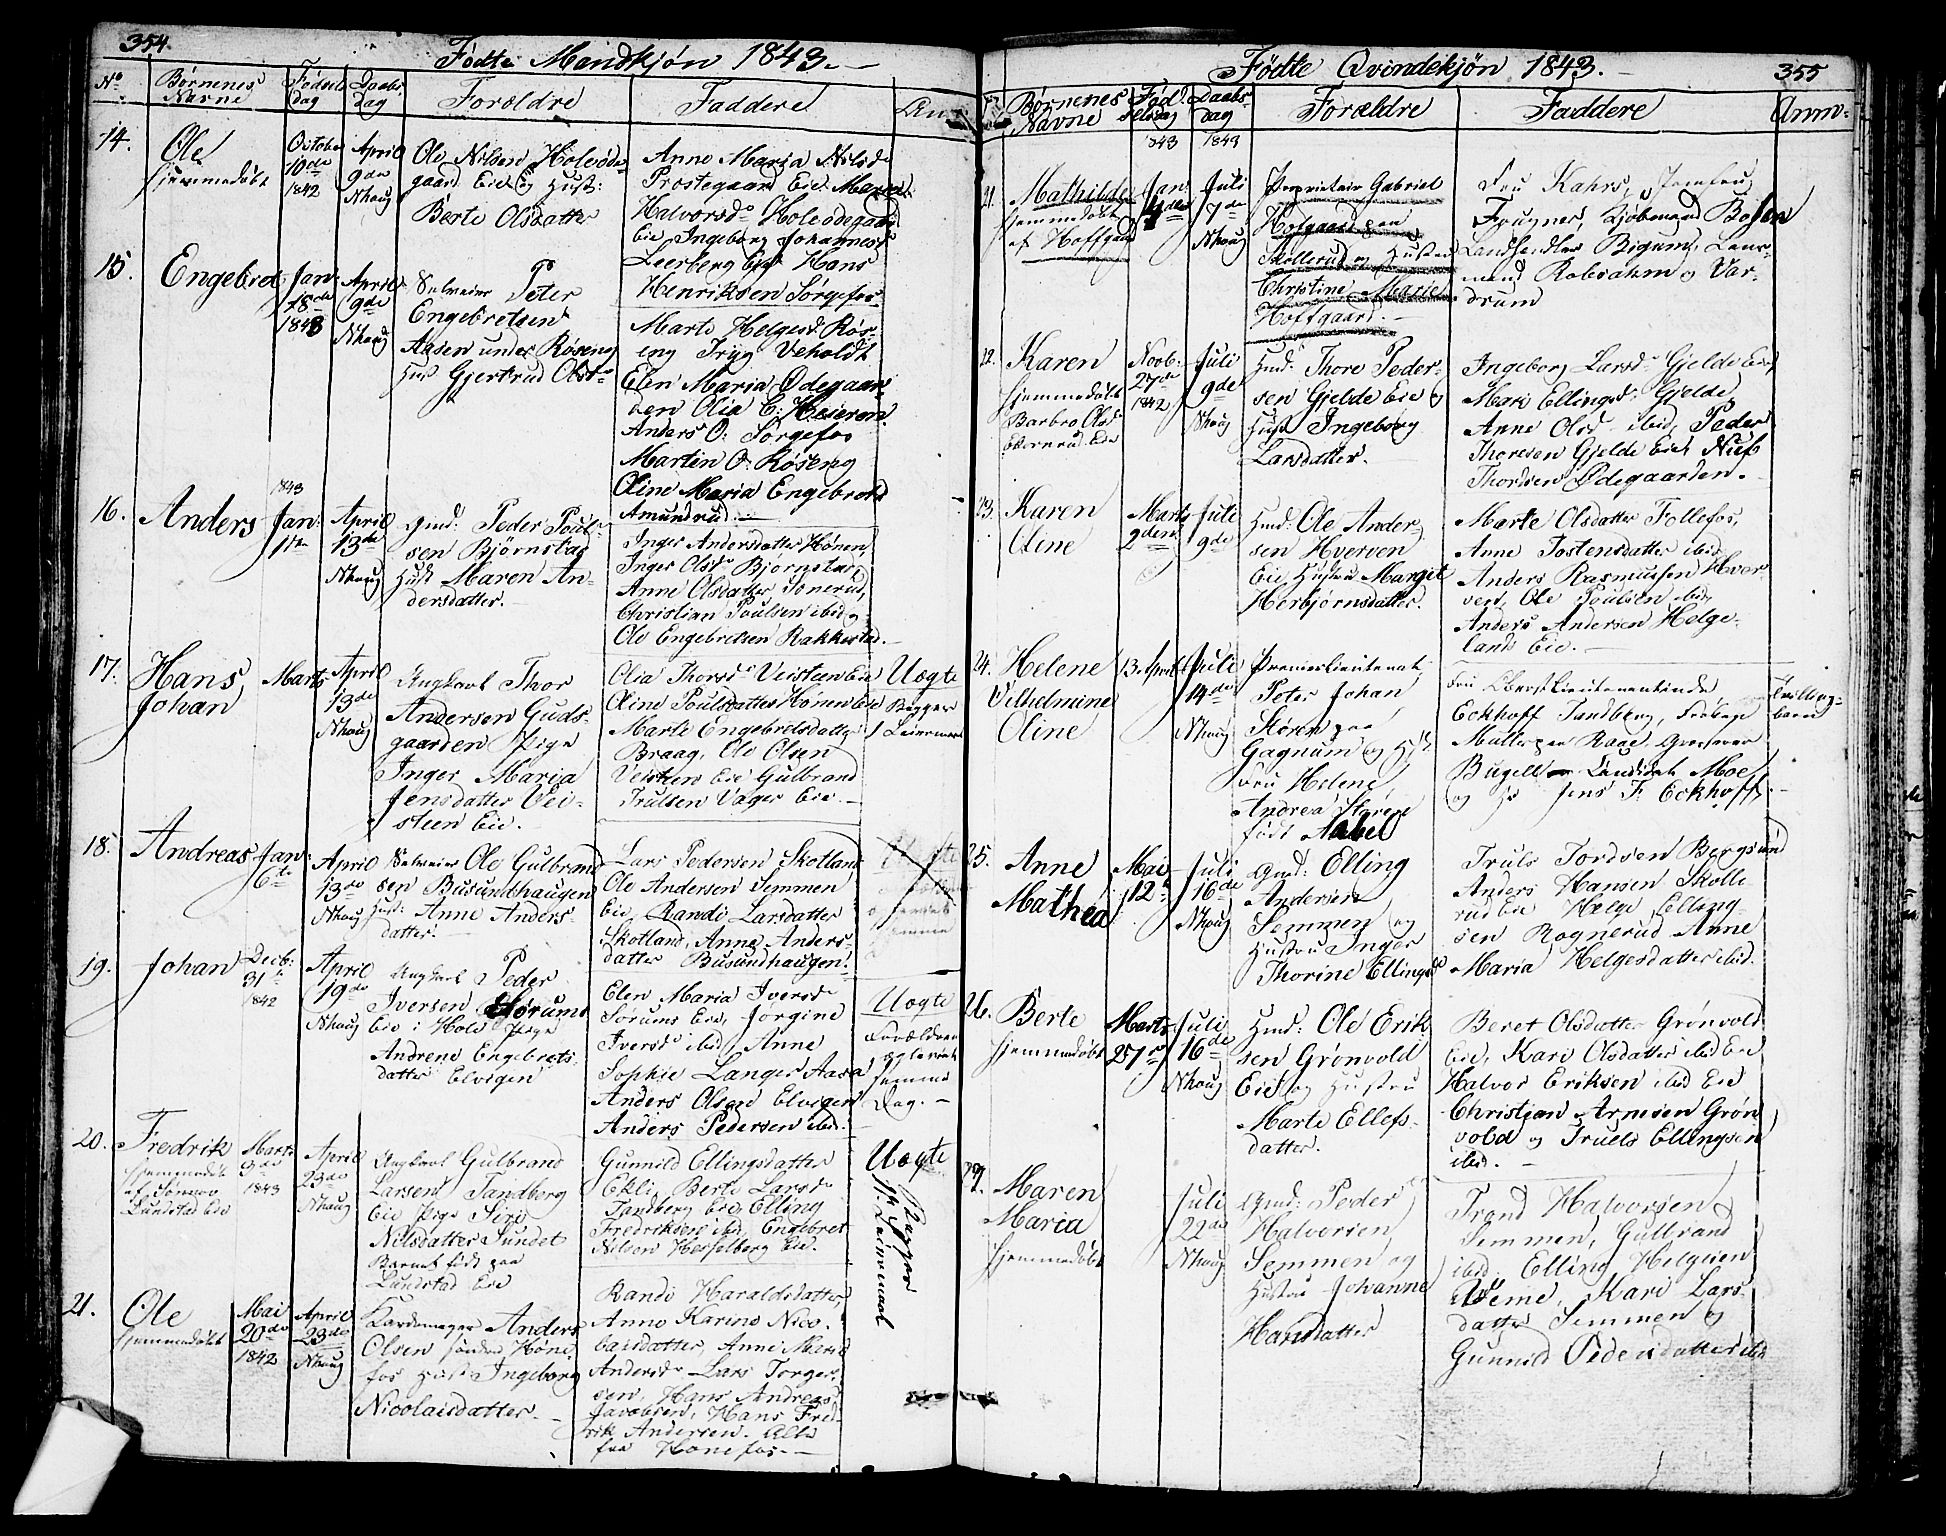 354.
Fødte Mandkjøn 1843.
No
Børnenes Navne
Fødsels dag
Daabs dag
Forældre
Faddere
Anm
14.
Ole
hjemmedøbt
October
10de
1842
April
9de
Nhoug
Ole Nilsen Holeøde-
gaard Eie og Hust:
Berte Olsdatter
Anne Maria Nilsd.
Prostegaard Eie Maren
Halvorsd. Holeødegaard
Eie, Ingeborg Johannesd.
Leerberg Eie Hans
Henriksen Sørgefos
15.
Engebret
Jan:
18de
1843
April
9de
Nhoug
Peter
Engebretsen
Aasen under Røseng
Hust Gjertrud Olsd.
Marte Helgesd. Røs-
eng Tryg Veholdt
Elen Maria Ødegaar-
den Olia C: Heieren
Anders O: Sørgefos
Martin O: Røseng
Oline Maria Engebretsd
Amundrud.
16.
Anders
1843
Jan:
1te
April
13de
Nhoug
Gmd: Peder Poul-
sen Bjørnstad
Hust Maren An-
dersdatter.
Inger Andersdatter Hønen,
Inger Olsd. Bjørnstad,
Anne Olsdatter Somerud,
Christian Poulsen ibid og
Ole Engebretsen Rakkestad.
17.
Hans
Johan
Marts
April
13de
Nhoug
Ungkarl Thor
Andersen Guds-
gaarden Pige
Inger Maria
Jensdatter Vei-
steen Eie.
Olia Thorsd. Veisteen Eie
Oline Poulsdatter Hønen Eie
Marte Engebretsdatter
Braag, Ole Olsen
Veisteen Eie Gulbrand
Trulsen Vager Eie.
Uægte
Begges
1 Leiermaal
18.
Andreas
Jan:
6te
April
13de
Nhoug
Ole Gulbrand
sen Busundhaugen
Hust: Anne Anders-
datter.
Lars Pedersen Skotland,
Ole Andersen Semmen
Eie, Randi Larsdatter
Skotland, Anne Anders-
datter Busundhaugen.
19.
Johan
Decb:
31te
1842
April
19de
Nhoug
Ungkarl Peder
Iversen Sørums
Eie i Hole Pige
Andrene Engebrets-
datter Elvigen
Elen Maria Iversd.
Sørums Eie, Jørgine
Iversd. ibid, Anne
Sophie Langer Aasa
Anders Olsen Elvigen
Anders Pedersen ibid.
Uægte
Forældrene
samme
Dag.
20.
Fredrik
hjemmedøbt
Lundstad Eie
Marts
9de
1843
April
23de
Nhoug
Ungkarl Gulbrand
Larsen Tandberg
Eie Pige Siri
Nilsdatter Sundet
Barnet født paa
Lundstad Eie
Gunnild Ellingsdatter
Ekli, Berte Larsd.
Tandberg Eie, Elling
Fredriksen ibid, Engebret
Nilsen Hesselberg Eie.
Uægte
Begges
Leiermaal
21.
Ole
hjemmedøbt
Mai
20de
1842
April
23de
Nhoug
Anders
Olsen søndre Høne-
fos Hust Ingeborg
Nicolaisdatter.
Randi Haraldsdatter,
Anne Karine Nico-
laisdatter, Anne Marie
Andersd. Lars Torger-
sen, Hans Andreas
Jacobsen, Hans Fred-
rik Andersen. Alle
fra Hønefos.
355
Fødte Qvindekjøn 1843.
Børnenes Navne
Fødselsdag
1843
Daabs-dag
1843
Forældre
Faddere
Anm:
21.
Mathilde
hjemmedøbt
af Hoffgaard
Jan:
4de
Juli
7de
Nhoug
Proprietair Gabriel
Hofgaard paa
Skollerud og Hustru
Christine Marie
Hoffgaard.
Fru Kahrs, Jomfru
Frugner, Kjøbmand Boysen
Landhandler Bigum, Lens-
mand Robsahm og Var-
drum
22.
Karen
hjemmedøbt
Barbro Olsd
Novb:
27de
1842
Juli
9de
Nhoug
Hmd: Thore Peder-
sen Gjelde Eie og
Hust Ingeborg
Larsdatter.
Ingeborg Larsd. Gjelde Eie,
Mari Ellingsd: Gjelde,
Anne Olsd. ibid, Peder
Thoresen Gjelde Eie, Niels
Thordsen Ødegaarden.
23.
Karen
Oline
Marts
9den
Juli
9de
Hmd: Ole Ander-
sen Hverven
Eie, Hustru Margit
Herbjørnsdatter.
Marte Olsdatter Follefos,
Anne Tostensdatter ibid,
Anders Rasmussen Hver-
ven, Ole Poulsen ibid,
Anders Andersen Helge-
lands Eie.
24.
Helene
Vilhelmine
Oline
13. April
Juli
14de
Nhoug
Premierlieutenat
Peter Johan
Støren paa
Gagnum og Hust
Fru Helene
Andrea Støren
født Aabel
Fru Oberstlieutenantinde
Eckhoff Tandberg, Frøken
Møller paa Raae, Grosserer
Bugell Candidat Moe
og Hr Jens F: Eckhoff.
Tvilling-
barn
25.
Anne
Mathea
Mai
12te
Juli
16de
Nhoug
Gmd: Elling
Andersen
Semmen og
Hustru Inger
Thorine Ellingsd
Truls Tordsen Bergsund
Anders Hansen Skolle-
rud Eie Helge Elling-
sen Rognerud Anne
Maria Helgesdatter ibid.
26.
Berte
hjemmedøbt
Marts
25de
Juli
16de
Nhoug
Hmd: Ole Erik
sen Grønvold
Eie og Hustru
Marte Ellefs-
datter.
Beret Olsdatter Grønvold
Eie, Kari Olsdatter ibid Eie
Halvor Eriksen ibid Eie
Christian Arnesen Grøn
vold og Truels Ellingsen
ibid.
27.
Maren
Maria
hjemmedøbt
Juli
22de
Nhoug
Gmd: Peder
Halvorsen
Semmen og
Hustru Johanne
Hansdatter
Trond Halvorsen
Semmen, Gulbrand
ibid. Elling Helgesen
Veme, Kari Lars-
datter Semmen og
Gunnild Pedersdatter ibid